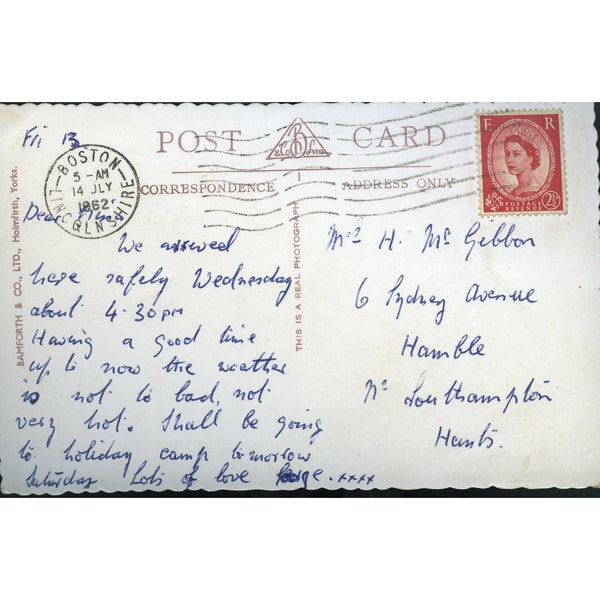 Fri 13
POST CARD
B & Co. Ltd
BOSTON
LINCOLNSHIRE
5 - AM
14 JLY
1962
E R
POSTAGE
REVENUE
2½
CORRESPONDENCE
ADDRESS ONLY
Dear
We arrived
here safely Wednesday
about 4.30 pm
Having a good time
up to now the weather
is not to bad, not
very hot. Shall be going
to holiday camp tomorrow
Saturday Lots of love xxxx
BAMFORTH & CO., LTD., Holmfirth, Yorks.
THIS IS A REAL PHOTOGRAPH
Mrs H. Mc Gibbon
6 Sydney Avenue
Hamble
Nr Southampton
Hants.